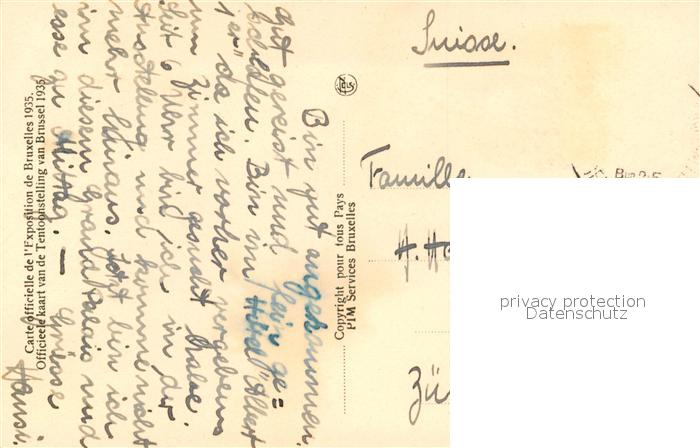 Carte officielle de l'Exposition de Bruxelles 1935.
Officieele kaart van de Tentoonstelling van Brussel 1935
Bin gut angekommen,
gut gereist und kein ge=
bschieden. Bin im Hotel "Albert
1er" da ich vorher vergebens
um Zimmer gesucht habe.
Seit 6 Uhr bin ich in der
Ausstellung und komme nicht
mehr hinaus. Jetzt bin ich
im diesem Grand Palais und
esse zu Mittag. — Grüsse
Hansi.
Copyright pour tous Pays
PIM Services Bruxelles
Suisse.
Famille
H.
Zü
privacy protection
Datenschutz